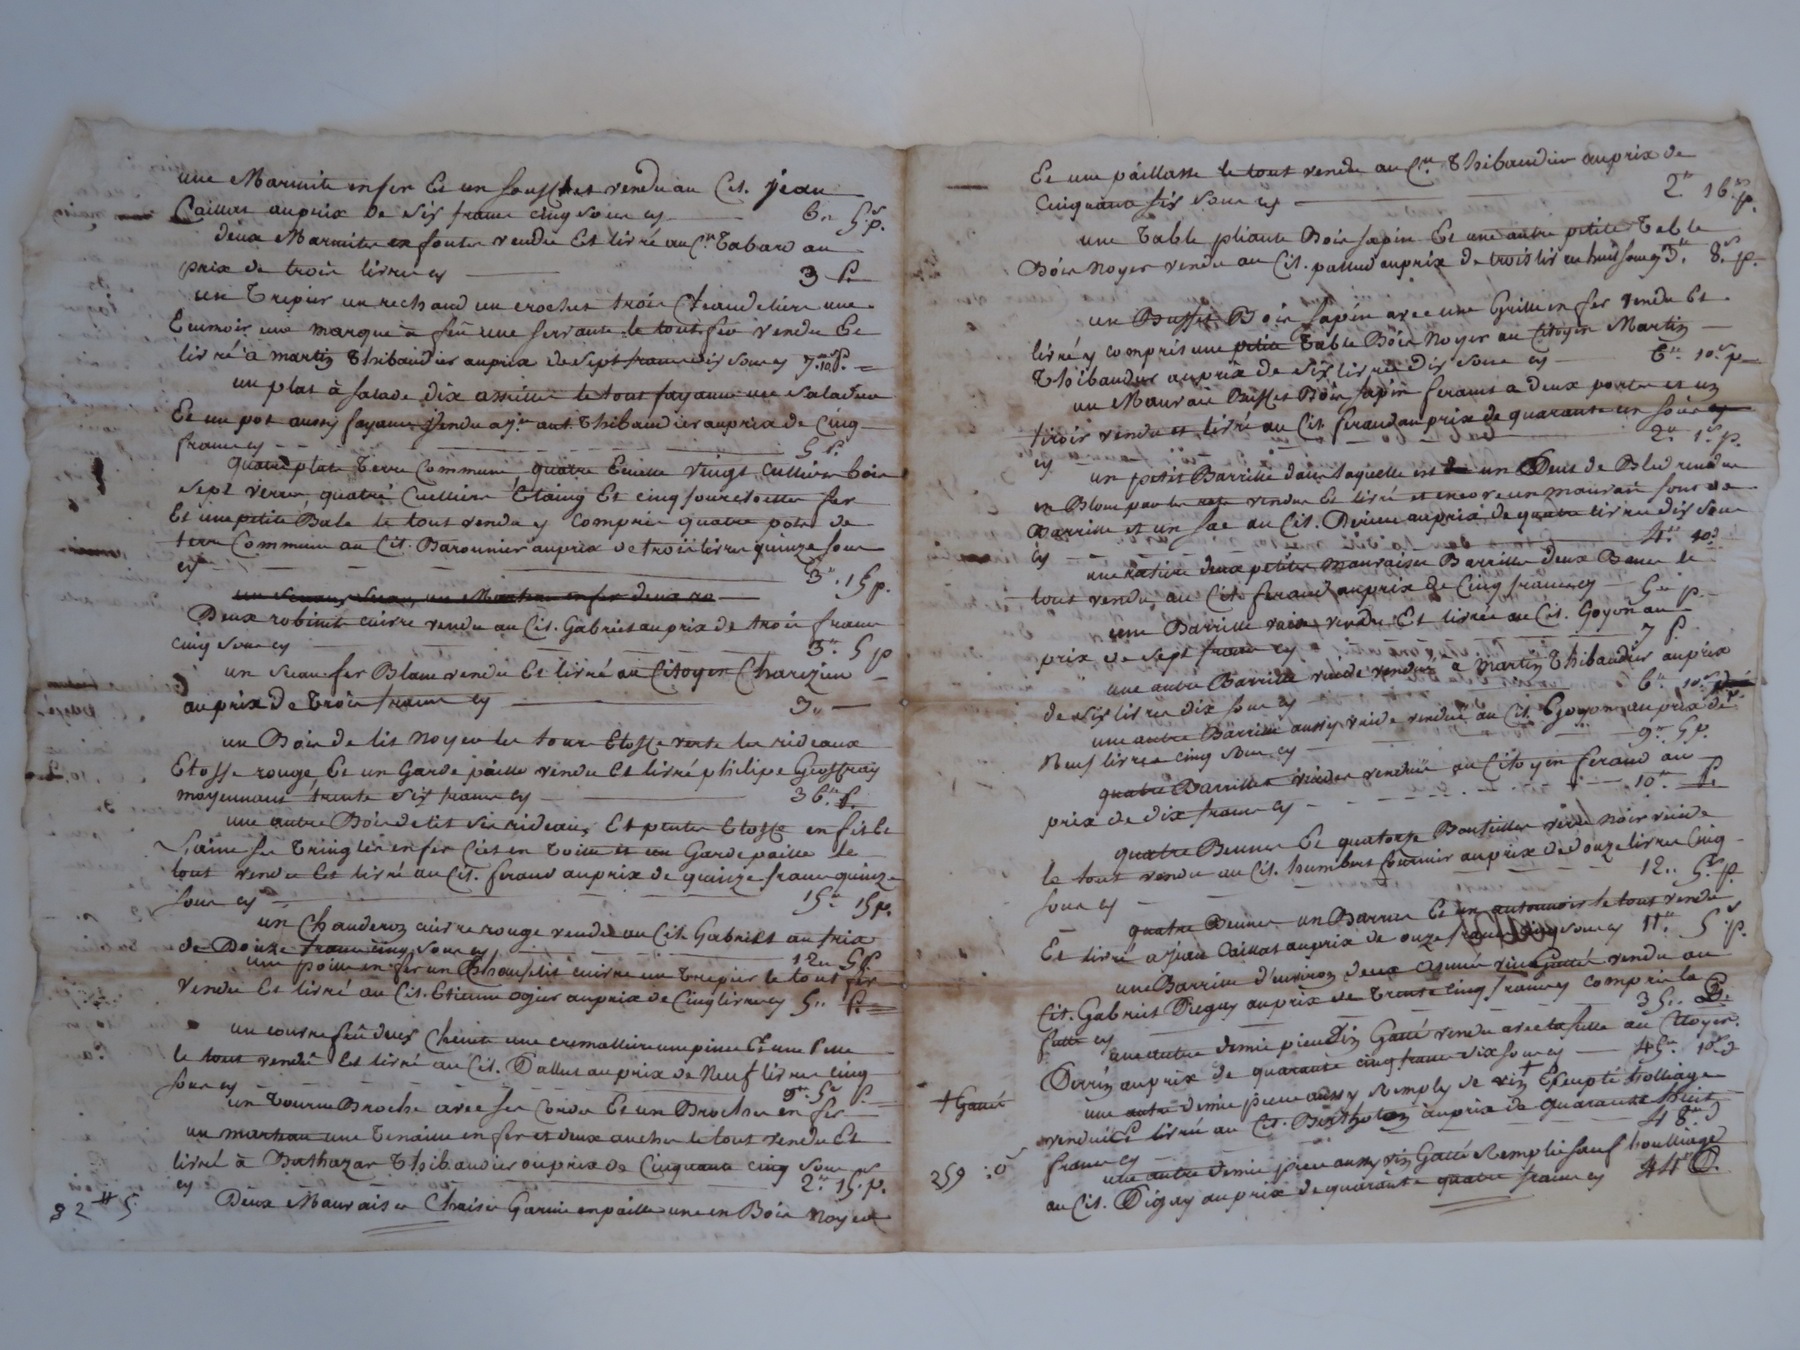 une Marmite en fer Et un soufflet vendu au Cit. jean
Caillat au prix de six francs cinq sous cy 6" 5 s. p.
deux Marmites en fonte vendu Et livré au Cn Tabard au
prix de trois livres cy 3 p.
un Trepier un rechaud un crochet trois Chandeliers une
Ecumoir une marque à feu une servante le tout fer vendu Et
livré à martin Thibaudier au prix de sept francs dix sous cy 7" 10 s p.
un plat à salade dix assiettes le tout fayance une saladier
Et un pot aussy fayance vendu a Thibaudier au prix de Cinq
francs cy 5 p.
quatre plat Terre Commune quatre Ecuelle vingt cuillier bois
sept verres quatre Cuilliers Etaing Et cinq fourchettes fer
Et une petite Bale le tout vendu y Compris quatre pots de
terre Commune au Cit. Baronnier au prix de trois livres quinze sous
cy 3" 15 p.
Deux robinets cuivre vendu au Cit. Gabriet au prix de trois francs
cinq sous cy 3" 5 p
un fer Blanc vendu Et livré au Citoyen Charezieu
au prix de trois francs cy 3"
un Bois de lit Noyer le tour Etoffe verte les rideaux
Etoffe rouge Et un Garde paille vendu Et livré philipe Geoffray
moyennant trente six francs cy 36" p.
une autre Bois de lit ses rideaux Et pentes Etoffe en fil Et
Laine ses Tringles en fer Ciel en Toille et un Garde paille le
tout vendu Et livré au Cit. feraud au prix de quinze francs quinze
sous cy 15" 15 p.
un Chauderon cuivre rouge vendu au Cit. Gabriet au prix
de Douze francs cinq sous cy 12" 5 p
une poille en fer un cuivre un Trepier le tout fer
vendu Et livré au Cit. Etienne ogier au prix de Cinq livres cy 5" p.
un couvre feu deux Chenets une cremalliere une pince Et une Pelle
le tout vendu Et livré au Cit. Pallud au prix de Neuf livres cinq
sous cy 9" 5 s p.
un Tourne Broche avec ses Cordes Et un Broches en fer
un marteau une Tenaille en fer et deux aucher le tout vendu Et
livré à Balthazar Thibaudier au prix de Cinquante cinq sous
cy 2" 15 p.
82 # 5
Deux Mauvaises Chaises Garnie en paille une en Bois Noyer
Et une paillasse le tout vendu au Cn. Thibaudier au prix de
Cinquante six sous cy 2" 16 s p.
une Table pliante Bois sapin Et une autre petite Table
Bois Noyer vendu au Cit. pallud au prix de trois livres huit sous cy 3" 8 s p.
un Buffet Bois sapin avec une Grille en fer vendu Et
livré y compris une petite Table Bois Noyer au Citoyen Martin
Thibaudier au prix de six livres dix sous cy 6" 10 s p
un Mauvais Buffet Bois sapin ferants a deux portes et un
tiroir vendu et livré au Cit feraud au prix de quarante un sous
cy 2" 1 s p.
un petit Barrille dans laquelle est un de Bled
vendu Et livré et encore un mauvais fond de
Barrille et un sac au Cit. Perieu au prix de quatre livres dix sous
cy 4" 10 s
une deux petites mauvaises Barrilles deux Banc le
tout vendu au Cit. feraud au prix de Cinq francs cy 5" p
une Barrille vuide vendu Et livrée au Cit. Goyon au
prix de sept francs cy 7 p.
une autre Barrille vuide vendue à Martin Thibaudier au prix
de six livres dix sous cy 6" 10 s p
une autre Barrille aussy vuide vendue au Cit. Goyon au prix de
Neuf livres cinq sous cy 9" 5 p.
quatre Barrilles vuides vendue au Citoyen feraud au
prix de dix francs cy 10" p.
quatre Bennes Et quatorze Bouteilles verre noir vuide
le tout vendu au Cit. humbert fournier au prix de douze livres Cinq
sous cy 12" 5 s p.
quatre Bennes un Barrau Et un antonnoir le tout vendu
Et livré a jean Caillat au prix de onze francs sous cy 11" 5 s p.
une Barrille d'environ deux Asnée vin Gatté vendu au
Cit. Gabriet Diguy au prix de Trente Cinq francs y compris la
futte cy 35"
une autre demie piece Vin Gatté vendu avec la futte au Citoyen
Perrin au prix de quarante cinq francs dix sous cy 45" 10 s
+ Gatté
une autre demie piece aussy Remply de vin + Exempté holliage
vendu Et livré au Cit. Bertholon au prix de quarante huit
francs cy 48"
259 : 0
une autre demie piece aussy vin Gatté Remplie sauf houlliage
au Cit. Diguy au prix de quarante quatre francs cy 44"